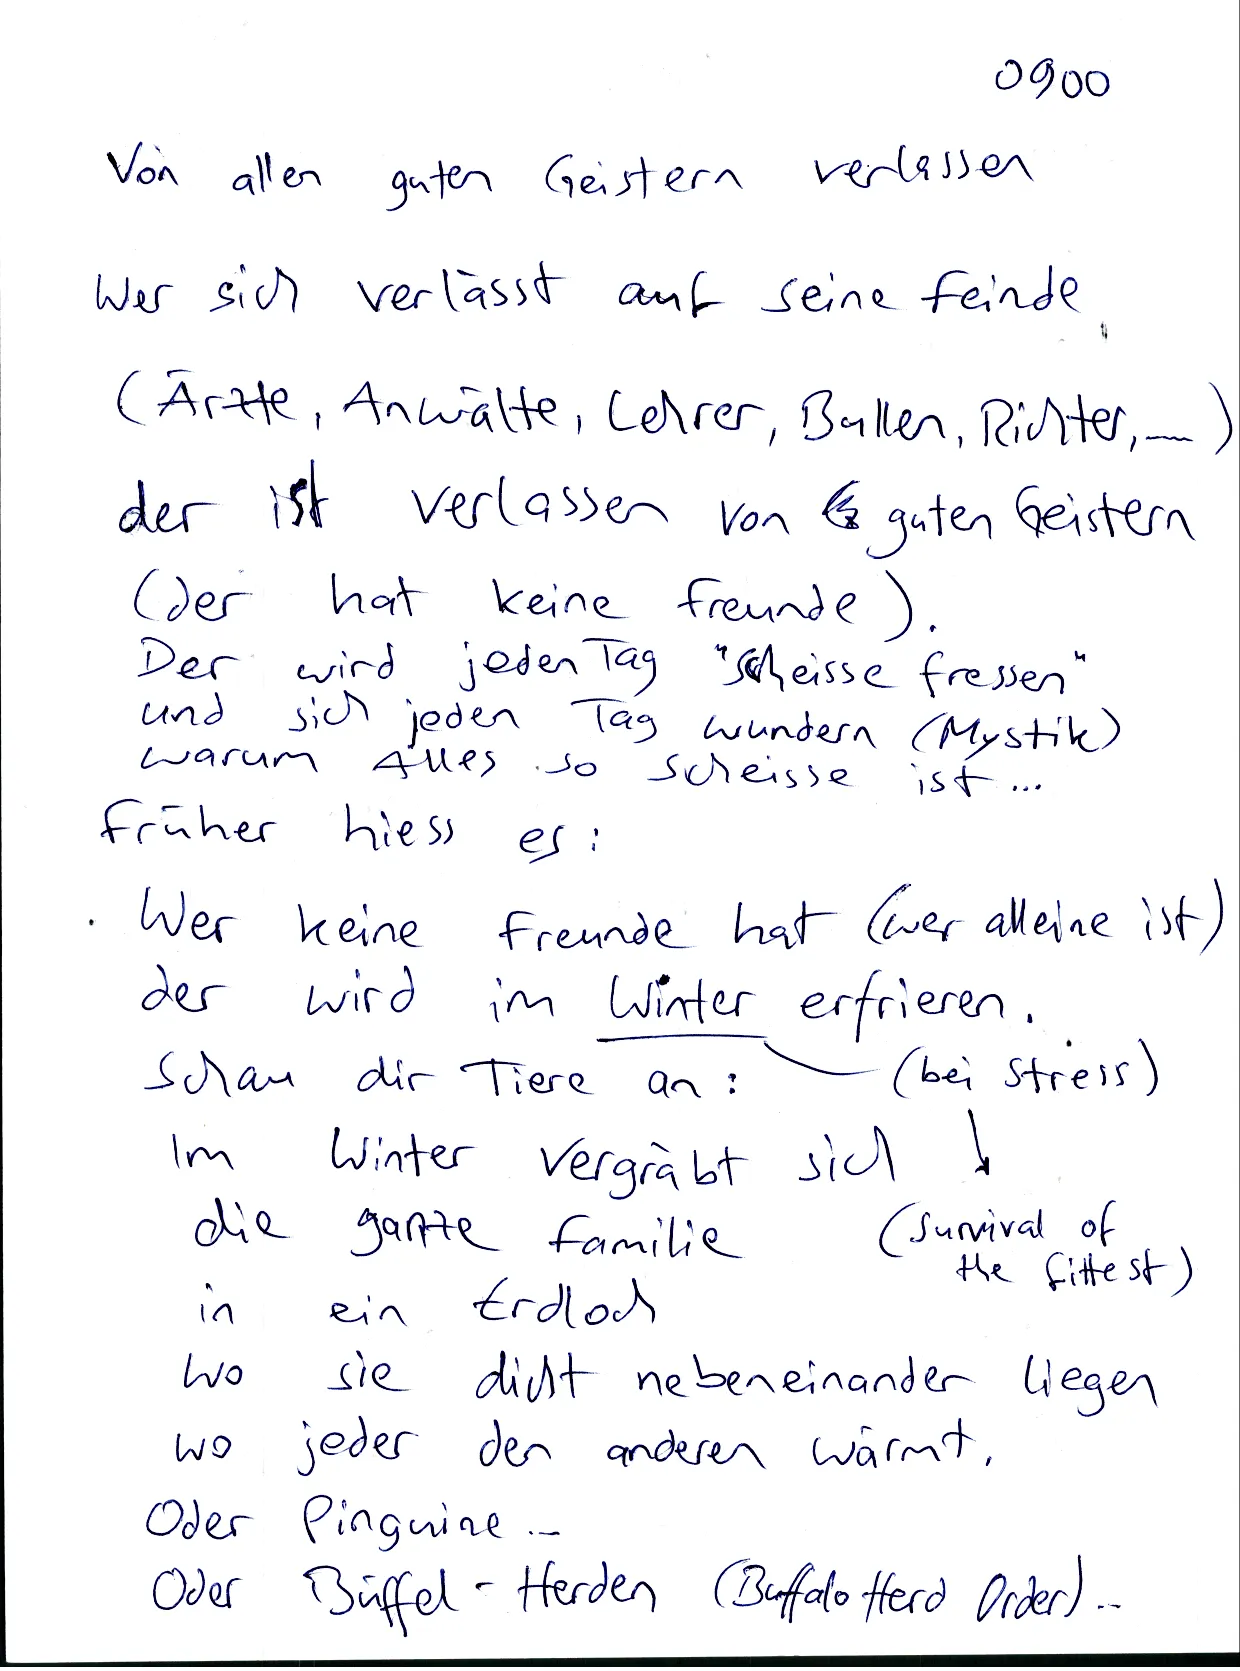 0900
Von allen guten Geistern verlassen
Wer sich verlässt auf seine Feinde
(Ärzte, Anwälte, Lehrer, Bullen, Richter, ...)
der ist verlassen von guten Geistern
(der hat keine Freunde).
Der wird jeden Tag "Scheisse fressen"
und sich jeden Tag wundern (Mystik)
warum Alles so scheisse ist...
Früher hiess es:
Wer keine Freunde hat (wer alleine ist)
der wird im Winter erfrieren.
Schau dir Tiere an: (bei Stress)
Im Winter vergräbt sich
die ganze Familie (Survival of
the fittest)
in ein Erdloch
wo sie dicht nebeneinander liegen
wo jeder den anderen wärmt.
Oder Pinguine...
Oder Büffel-Herden (Buffalo Herd Order)...